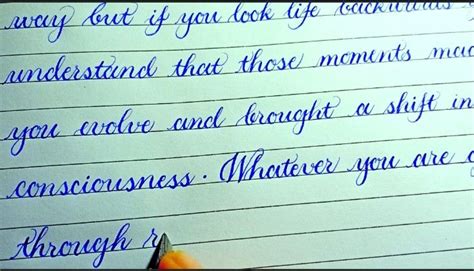 way but if you look life backwards
understand that those moments mad
you evolve and brought a shift in
consciousness. Whatever you are g
through r